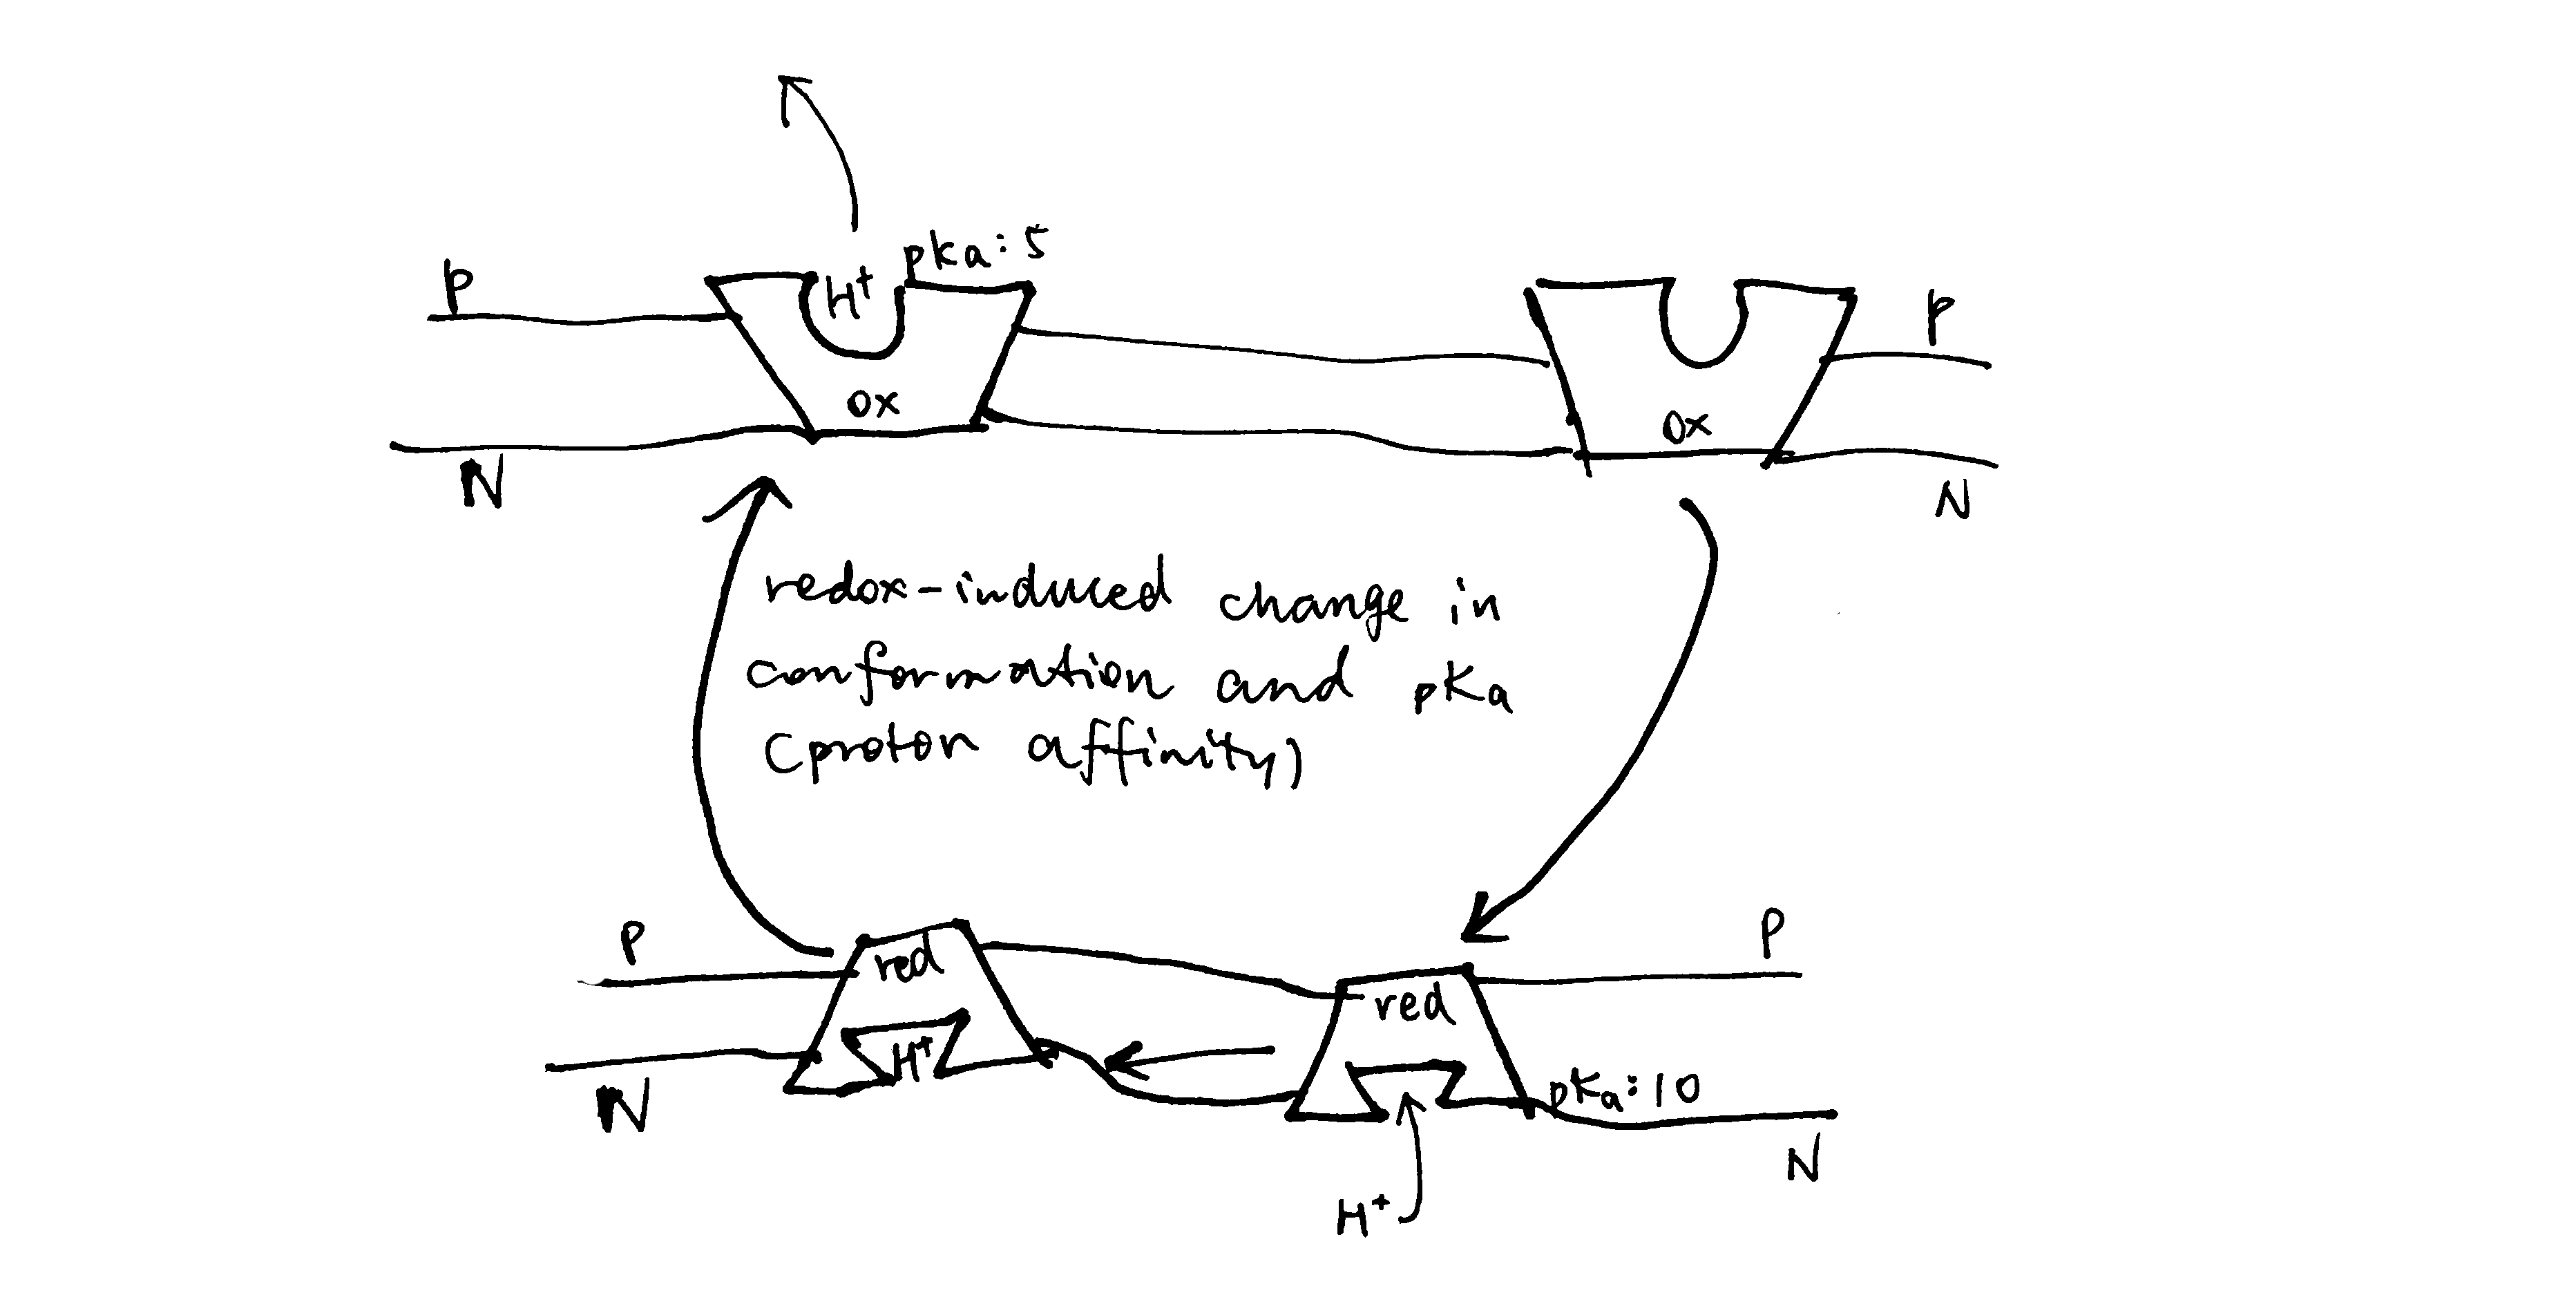 pka: 5
P
H⁺
P
ox
ox
N
N
redox-induced change in
conformation and pKa
(proton affinity)
P
P
red
red
H⁺
pKa: 10
N
N
H⁺